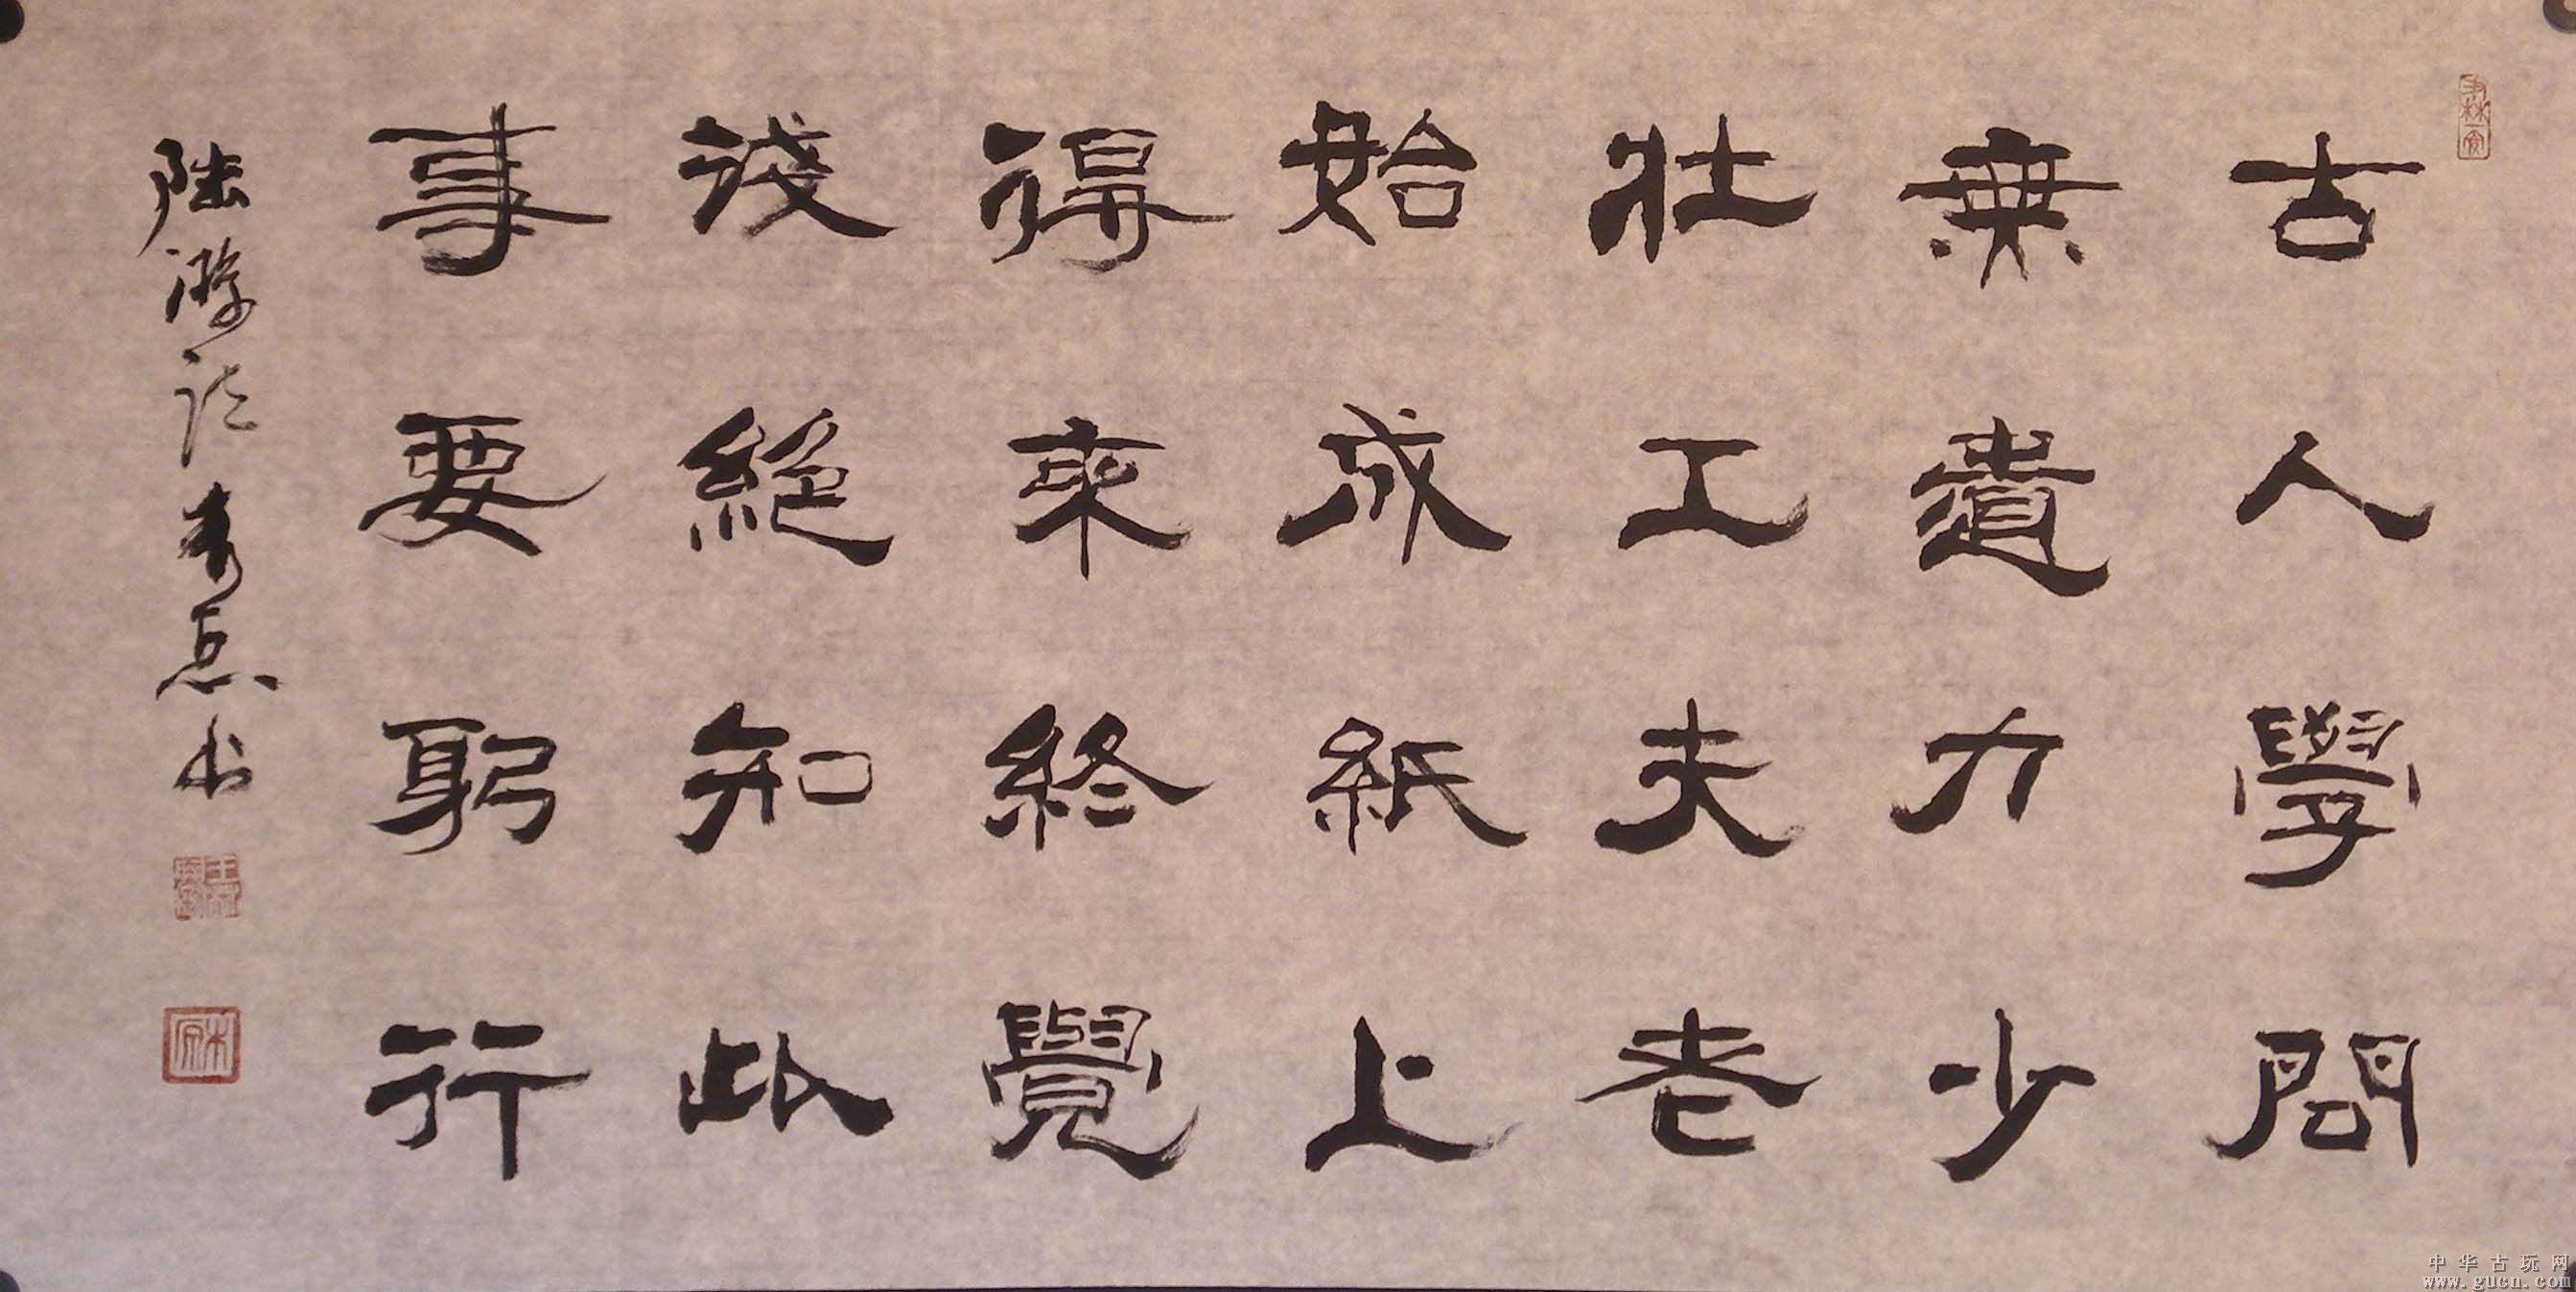 古人學問
無遺力少
壯工夫老
始成紙上
得來終覺
淺絕知此
事要躬行
陸游詩 书
中华古玩网
www.gucn.com